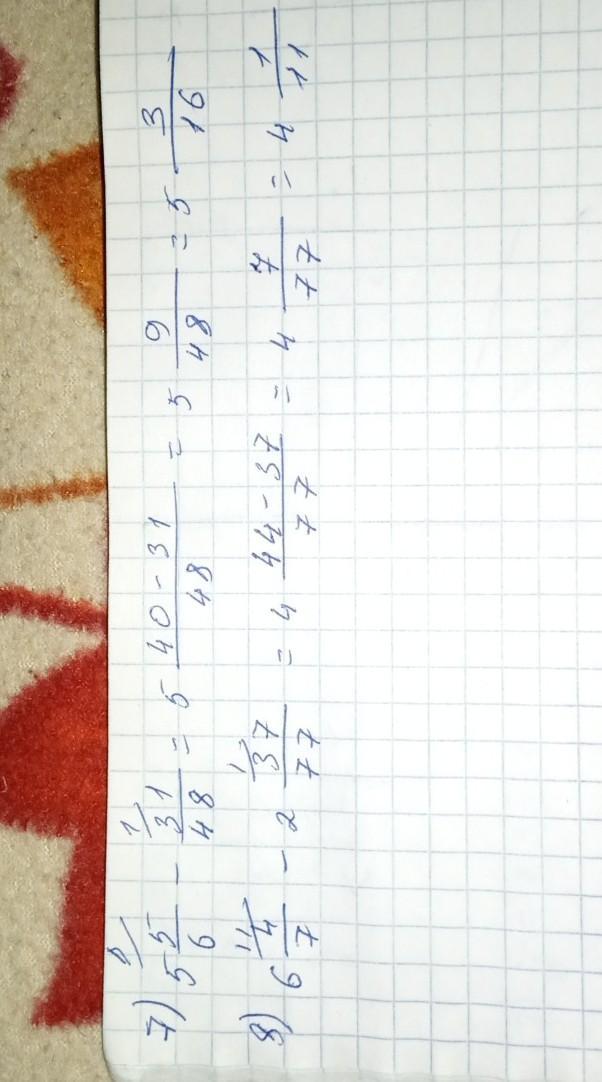 7) 5 5/6 - 31/48 = 5 40-31/48 = 5 9/48 = 5 3/16
8) 6 4/7 - 2 37/77 = 4 44-37/77 = 4 7/77 = 4 1/11